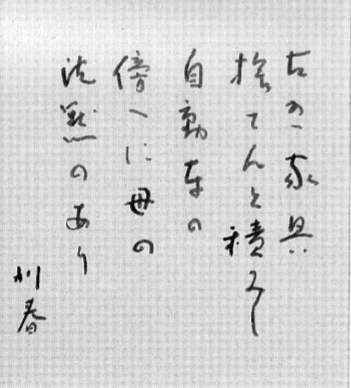 古き家具
捨てんと積みし
自動車の
傍へに母の
沈黙のあり